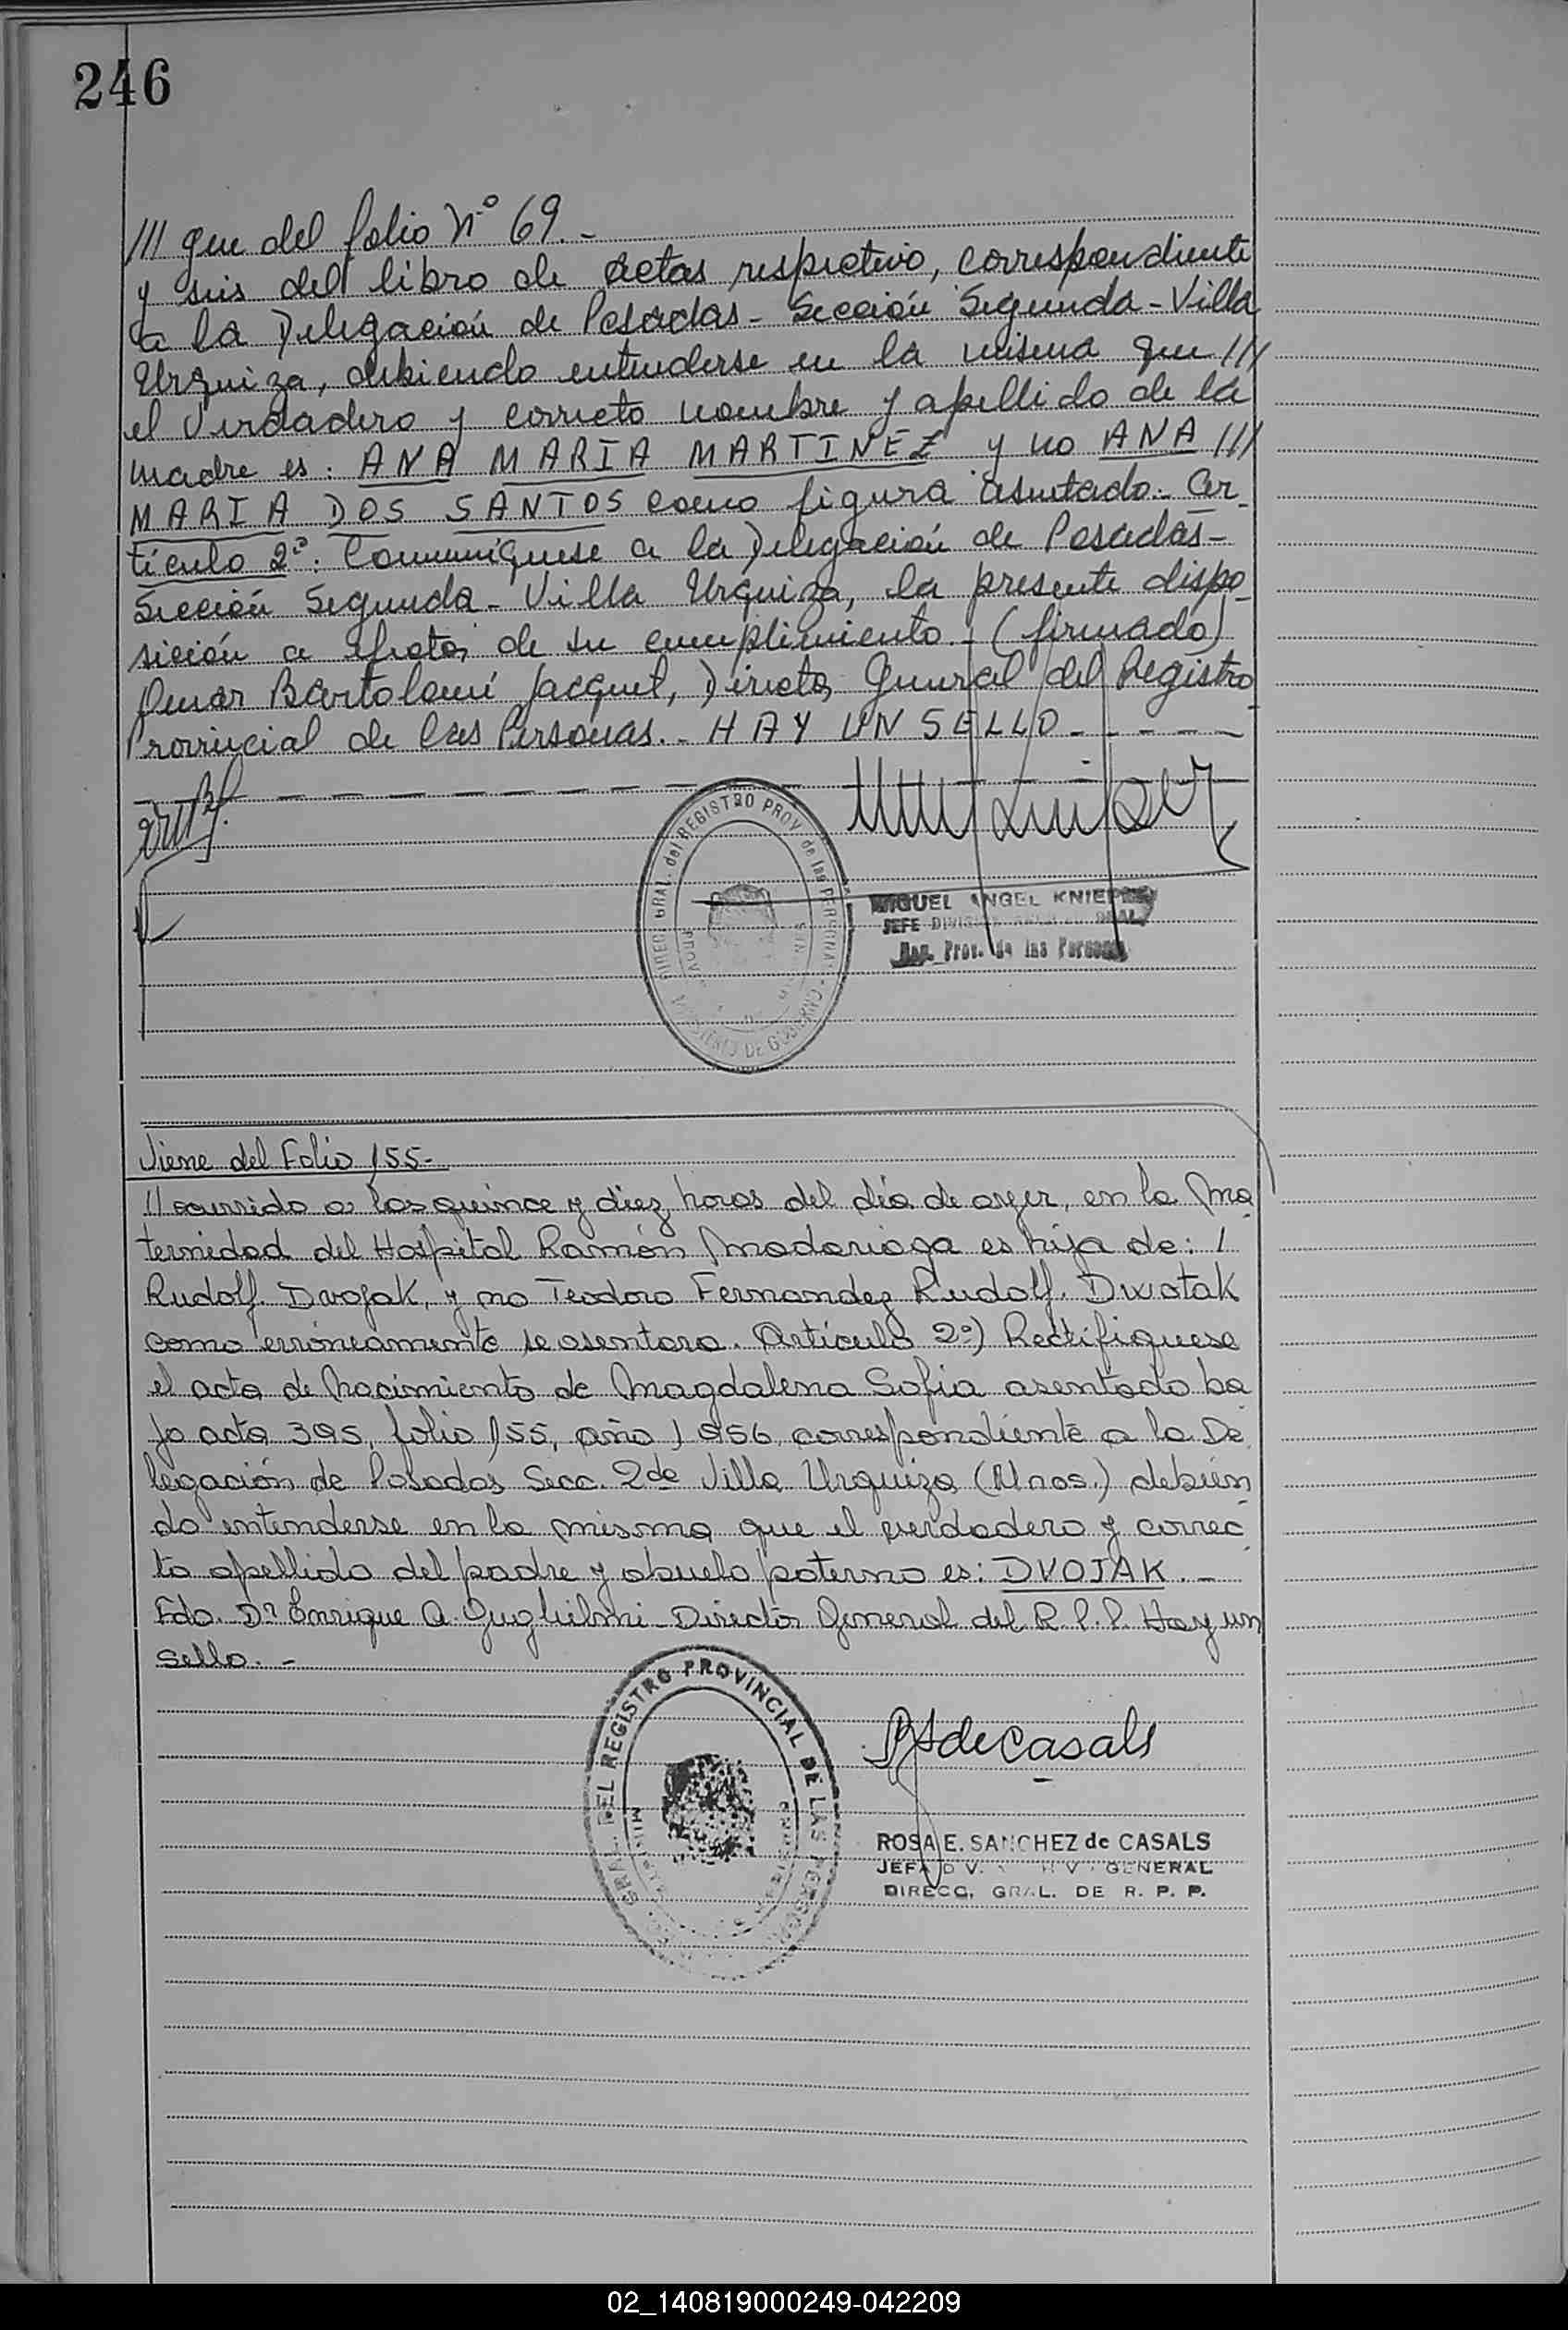 246
/// que del folio Nº 69.-
y seis del libro de actas respectivo, correspondiente
a la Delegación de Posadas - Sección Segunda - Villa
Urquiza, debiendo entenderse en la misma que ///
el verdadero y correcto nombre y apellido de la
madre es: ANA MARIA MARTINEZ y no ANA ///
MARIA DOS SANTOS como figura asentado.- Ar_
tículo 2º: Comuníquese a la Delegación de Posadas-
Sección Segunda - Villa Urquiza, la presente dispo_
sición a efectos de su cumplimiento.- (firmado)
Omar Bartolomé Jacquet, Director General del Registro
Provincial de las Personas.- HAY UN SELLO - - - - -
DIREC. GRAL. del REGISTRO PROV. de las PERSONAS
MINISTERIO DE GOBIERNO
MIGUEL ANGEL KNIEPER
JEFE DIVISION GRAL.
Reg. Prov. de las Personas
Viene del Folio 155-
// ocurrido a las quince y diez horas del día de ayer, en la Ma
ternidad del Hospital Ramón Madariaga es hija de: /
Rudolf. Dvojak, y no Teodoro Fernandez Rudolf. Dwotak
como erróneamente se asentara. Artículo 2º) Rectifiquese
el acta de nacimiento de Magdalena Sofia asentado ba
jo acta 395, folio 155, año 1956, correspondiente a la De
legación de Posadas Secc. 2da Villa Urquiza (Mnes.) debien
do entenderse en la misma que el verdadero y correc
to apellido del padre y abuelo paterno es: DVOJAK.-
Fdo. Dr Enrique A. Guglielmi - Director General del R.P.P. Hay un
sello.-
GRAL. DEL REGISTRO PROVINCIAL DE LAS PERSONAS
RS de Casals
ROSA E. SANCHEZ de CASALS
JEFA DIV. ARCHIVO GENERAL
DIRECC. GRAL. DE R. P. P.
02_140819000249-042209